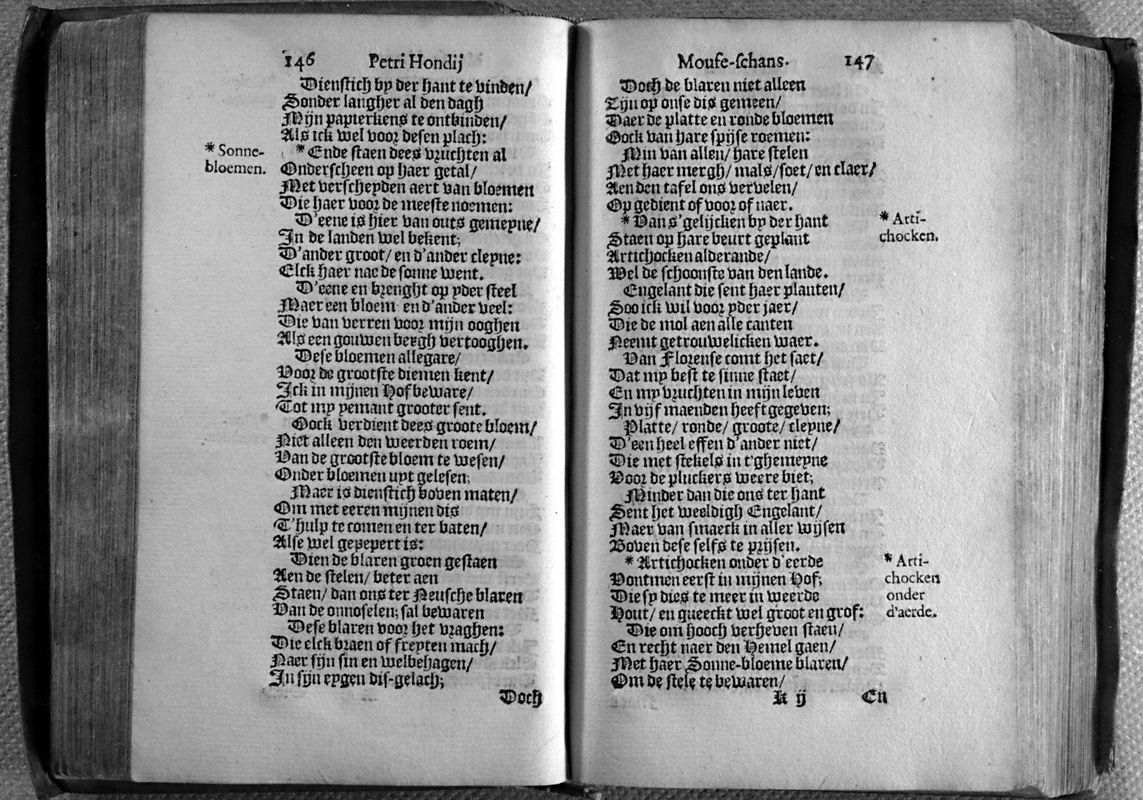 146 Petri Hondij
Dienstich by der hant te vinden/
Sonder langher al den dagh
Mijn papierkens te ontbinden/
Als ick wel voor desen plach:
* Sonne-
bloemen.
* Ende staen dees vruchten al
Onderscheen op haer getal/
Met verscheyden aert van bloemen
Die haer voor de meeste noemen:
D'eene is hier van outs gemeyne/
In de landen wel bekent;
D'ander groot/ en d'ander cleyne:
Elck haer nae de sonne went.
D'eene en brenght op yder steel
Maer een bloem en d'ander veel:
Die van verren voor mijn ooghen
Als een gouwen bergh vertooghen.
Dese bloemen allegare/
Voor de grootste diemen kent/
Ick in mijnen Hof beware/
Tot my yemant grooter sent.
Oock verdient dees groote bloem/
Niet alleen den weerden roem/
Van de grootste bloem te wesen/
Onder bloemen uyt gelesen;
Maer is dienstich boven maten/
Om met eeren mijnen dis
T'hulp te comen en ter baten/
Alse wel gepepert is:
Dien de blaren groen gestaen
Aen de stelen/ beter aen
Staen/ dan ons ter Neusche blaren
Van de onnoselen; sal bewaren
Dese blaren voor het vraghen:
Die elck braen of freyten mach/
Naer sijn sin en welbehagen/
In sijn eygen dis-gelach;
Doch
Mouse-schans. 147
Doch de blaren niet alleen
Zijn op onse dis gemeen/
Daer de platte en ronde bloemen
Oock van hare spijse roemen:
Min van allen/ hare stelen
Met haer mergh/ mals/ soet/ en claer/
Aen den tafel ons vervelen/
Op gedient of voor of naer.
* Van s'gelijcken by der hant
Staen op hare beurt geplant
Artichocken alderande/
Wel de schoonste van den lande.
* Arti-
chocken.
Engelant die sent haer planten/
Soo ick wil voor yder jaer/
Die de mol aen alle canten
Neemt getrouwelicken waer.
Van Florense comt het saet/
Dat my best te sinne staet/
En my vruchten in mijn leven
In vijf maenden heeft gegeven;
Platte/ ronde/ groote/ cleyne/
D'een heel effen d'ander niet/
Die met stekels in t'ghemeyne
Voor de pluckers weere biet;
Minder dan die ons ter hant
Sent het weeldigh Engelant/
Maer van smaeck in aller wijsen
Boven dese selfs te prijsen.
* Artichocken onder d'eerde
Vontmen eerst in mijnen Hof;
Die sy dies te meer in weerde
Hout/ en queeckt wel groot en grof:
* Arti-
chocken
onder
d'aerde.
Die om hooch verheven staen/
En recht naer den Hemel gaen/
Met haer Sonne-bloeme blaren/
Om de stele te bewaren/
K ij En